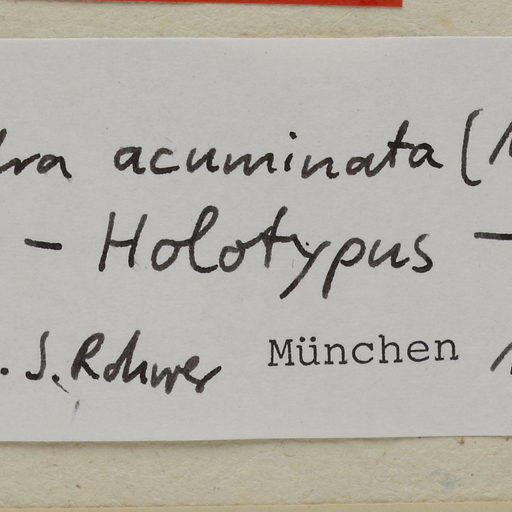 acuminata (
- Holotypus -
. S. Rohwer München